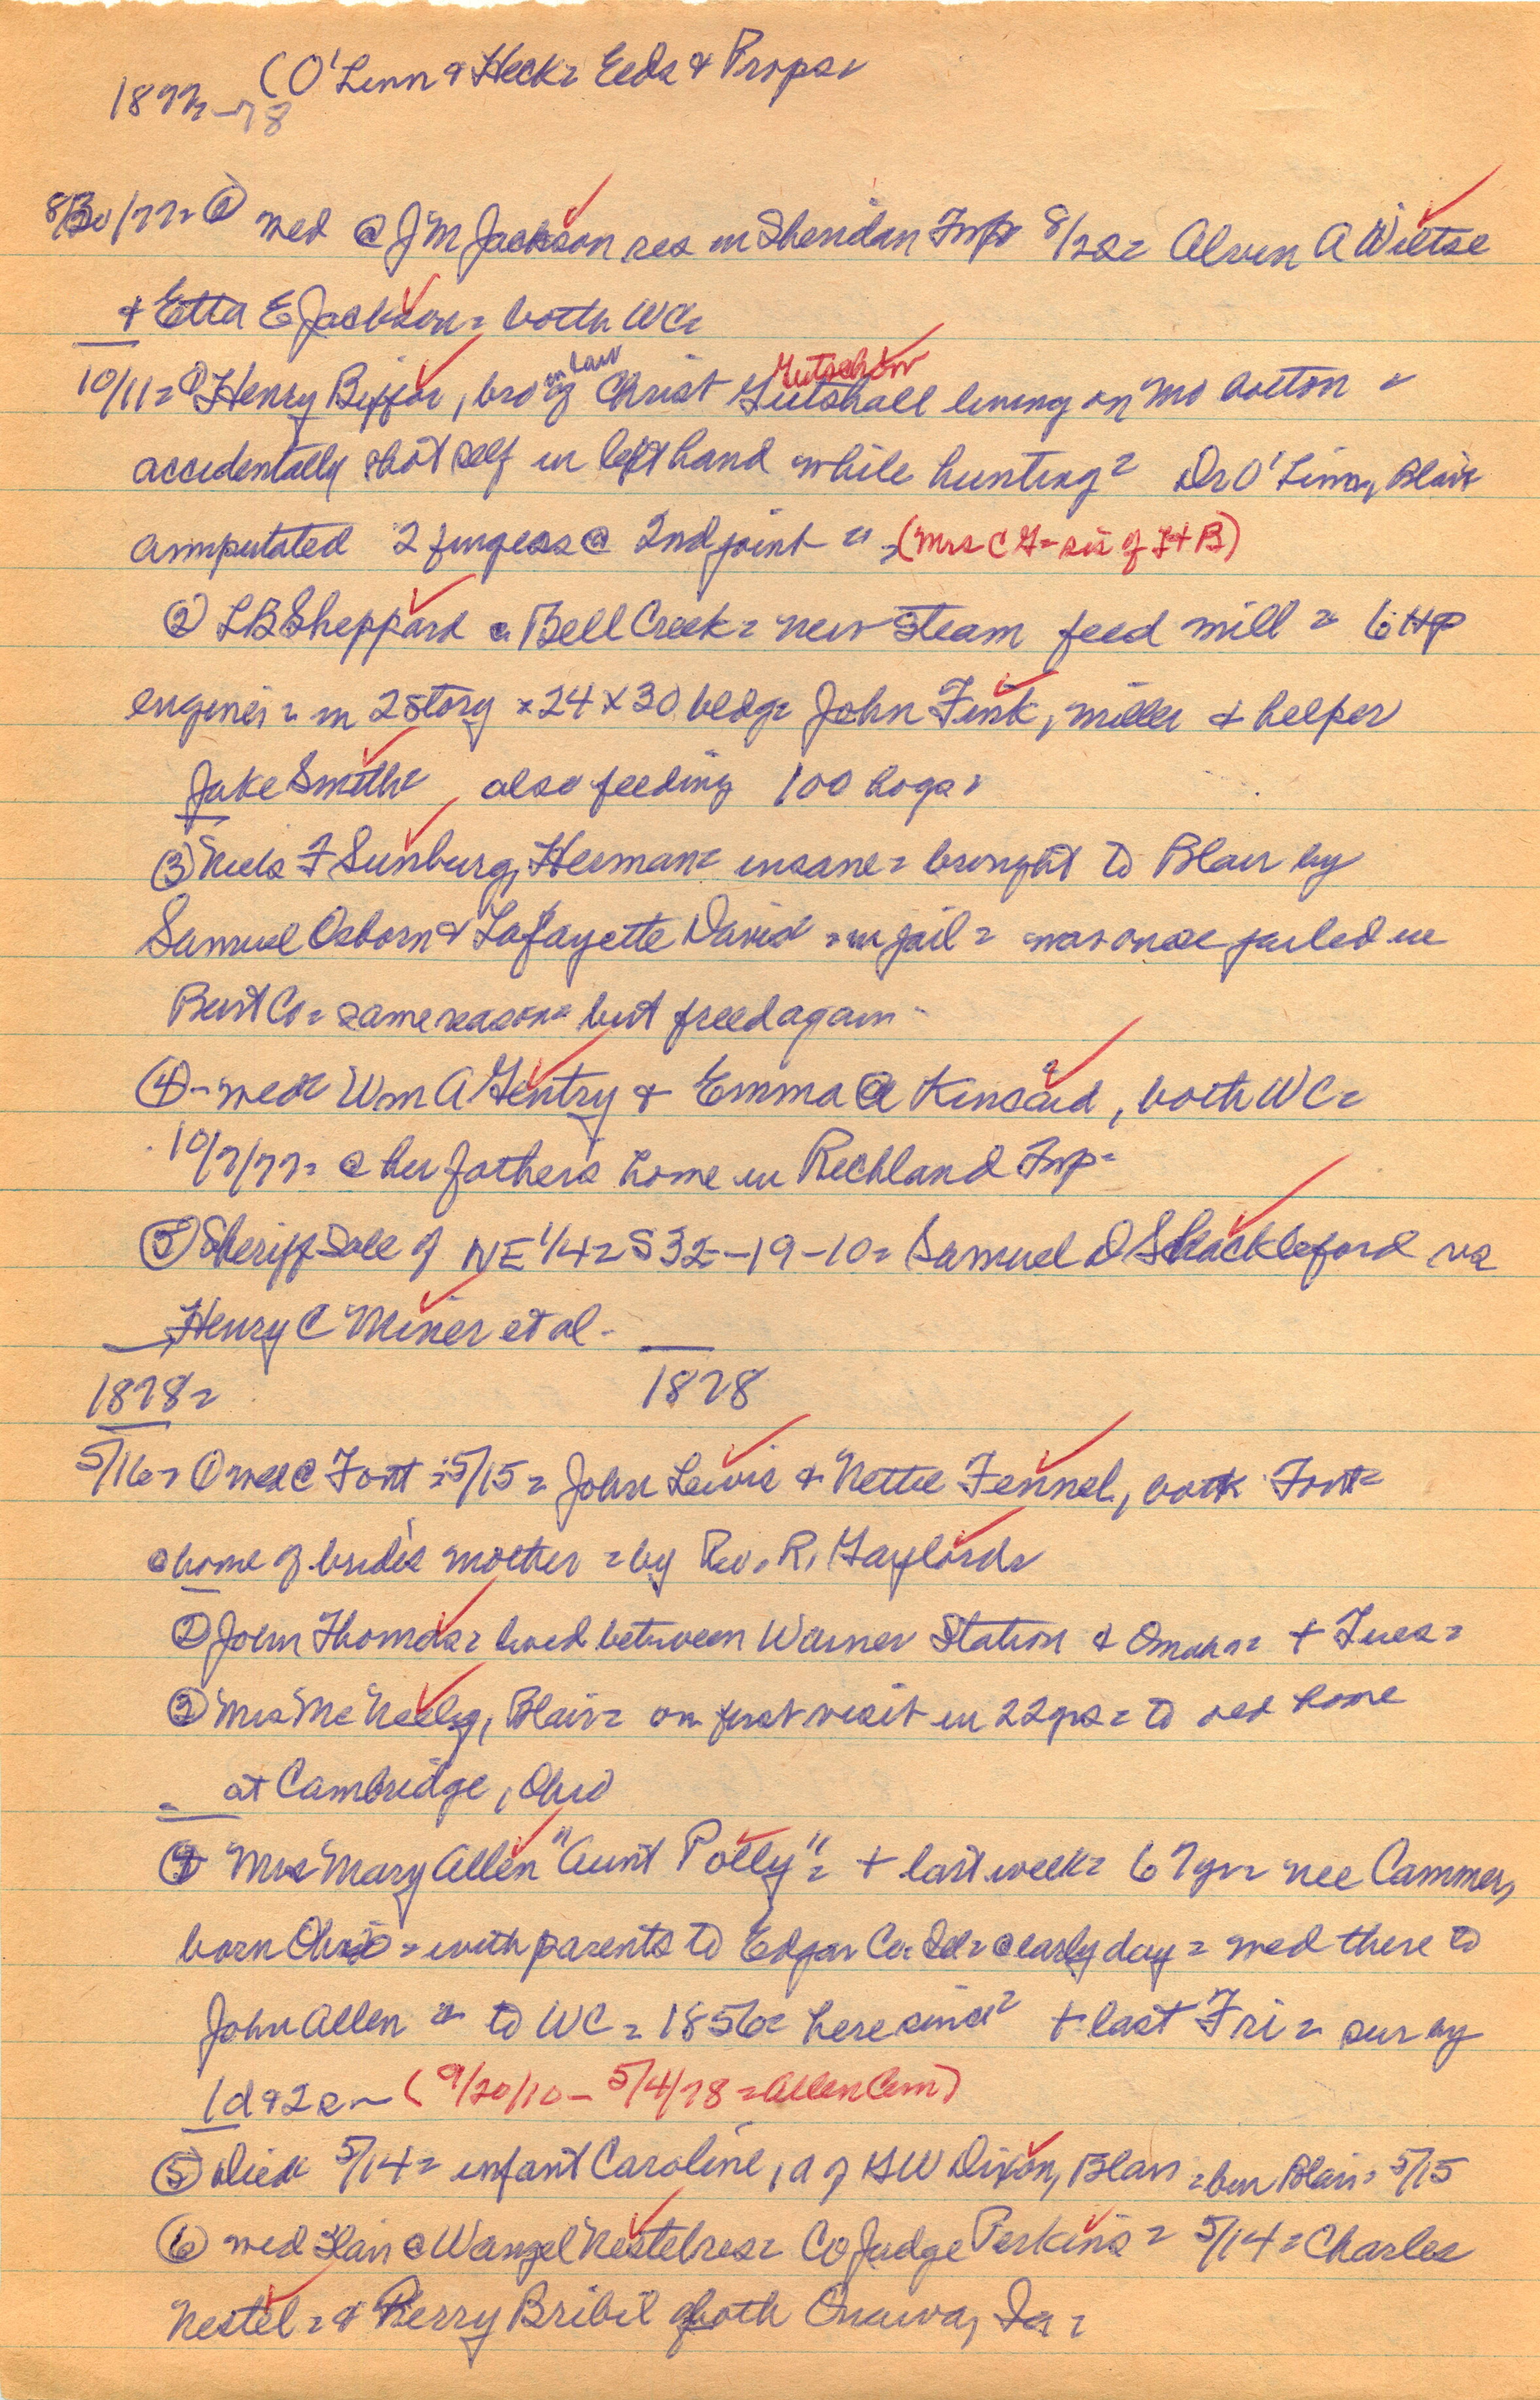 (O'Linn & Heck= Eeds & Props=
1877-78
8/30/77= ① med @ J M Jackson res in Sheridan Twp 8/28= Alven A Wiltse
& Etta E Jackson= both WC=
10/11= ① Henry , bro in law of Christ Gutshall Gutschow living on Mo bottom =
accidentally shot self in left hand while hunting= Dr O'Linn, Blair
amputated 2 fingers @ 2nd joint = (Mrs C G= sis of H B)
② L B Sheppard @ Bell Creek= new steam feed mill = 6 HP
engine = in 2 story 24 x 30 bldg= John Fink, miller & helper
Jake Smith= also feeding 100 hogs=
③ Neels F Sunburg, Herman= insane= brought to Blair by
Samuel Osborn & Lafayette David = in jail = was once jailed in
Burt Co= same reason= but freed again
④ - med= Wm A Gentry & Emma A Kinsaid, both WC=
10/7/77= @ her father's home in Richland Twp=
⑤ Sheriff Sale of NE 1/4= S32--19-10= Samuel D Shackleford vs
Henry C Miner et al -
1878= 1878
5/16= ① med @ Font = 5/15= John Lewis & Nettie Fennel, both Font=
@ home of bride's mother = by Rev. R. Gaylord=
② John Thomas= lived between Warner Station & Omaha= + Tues=
③ Mrs McNeely, Blair= on first visit in 22 yrs= to old home
= at Cambridge, Ohio
④ Mrs Mary Allen "Aunt Polly"= + last week= 67 yr= nee Cammer,
born Ohio = with parents to Edgar Co Ill= @ early day = med there to
John Allen = to WC = 1856= here since= + last Fri = sur by
1d & 2s ~ (9/20/10 - 5/4/78 = Allen Cem)
⑤ Died 5/14= infant Caroline, d of G W Dixon, Blair = bur Blair= 5/15
⑥ med Blair @ Wanzel Nestel res= Co Judge Perkins = 5/14= Charles
Nestel= & Berry Bribil of both Onawa, Ia=